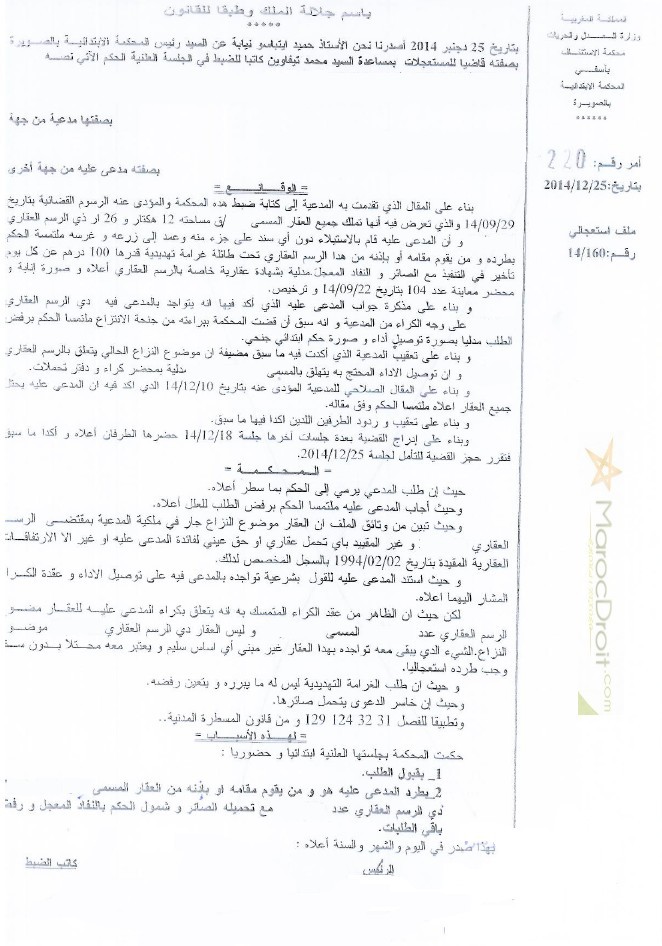 المملكة المغربية
وزارة العدل والحريات
محكمة الاستئناف
بآسفي
المحكمة الابتدائية
بالصويرة
******
أمر رقم: 220
بتاريخ: 2014/12/25
ملف استعجالي
رقم: 14/160
باسم جلالة الملك وطبقا للقانون
*****
بتاريخ 25 دجنبر 2014 أصدرنا نحن الأستاذ حميد ايتباسو نيابة عن السيد رئيس المحكمة الابتدائية بالصويرة
بصفته قاضيا للمستعجلات بمساعدة السيد محمد تيفاوين كاتبا للضبط في الجلسة العلنية الحكم الآتي نصه
بصفتها مدعية من جهة
بصفته مدعى عليه من جهة أخرى
= الوقائع =
بناء على المقال الذي تقدمت به المدعية إلى كتابة ضبط هذه المحكمة والمؤدى عنه الرسوم القضائية بتاريخ
14/09/29 والذي تعرض فيه أنها تملك جميع العقار المسمى /ق مساحته 12 هكتار و 26 ار ذي الرسم العقاري
و أن المدعى عليه قام بالاستيلاء دون أي سند على جزء منه وعمد إلى زرعه و غرسه ملتمسة الحكم
بطرده و من يقوم مقامه أو بإذنه من هدا الرسم العقاري تحت طائلة غرامة تهديدية قدرها 100 درهم عن كل يوم
تأخير في التنفيذ مع الصائر و النفاد المعجل مدلية بشهادة عقارية خاصة بالرسم العقاري أعلاه و صورة إنابة و
محضر معاينة عدد 104 بتاريخ 14/09/22 و ترخيص.
و بناء على مذكرة جواب المدعى عليه الذي أكد فيها انه يتواجد بالمدعى فيه دي الرسم العقاري
على وجه الكراء من المدعية و انه سبق أن قضت المحكمة ببراءته من جنحة الانتزاع ملتمسا الحكم برفض
الطلب مدليا بصورة توصيل أداء و صورة حكم ابتدائي جنحي.
و بناء على تعقيب المدعية الذي أكدت فيه ما سبق مضيفة ان موضوع النزاع الحالي يتعلق بالرسم العقاري
و ان توصيل الاداء المحتج به يتهلق بالمسمى مدلية بمحضر كراء و دفتر تحملات.
و بناء على المقال الصلاحي للمدعية المؤدى عنه بتاريخ 14/12/10 الدي اكد فيه ان المدعى عليه يحتل
جميع العقار اعلاه ملتمسا الحكم وفق مقاله.
و بناء على تعقيب و ردود الطرفين اللدين اكدا فيها ما سبق.
وبناء على إدراج القضية بعدة جلسات أخرها جلسة 14/12/18 حضرها الطرفان أعلاه و أكدا ما سبق
فتقرر حجز القضية للتأمل لجلسة 2014/12/25.
= المحكمة =
حيث إن طلب المدعي يرمي إلى الحكم بما سطر أعلاه.
وحيث أجاب المدعى عليه ملتمسا الحكم برفض الطلب للعلل أعلاه.
وحيث تبين من وثائق الملف ان العقار موضوع النزاع جار في ملكية المدعية بمقتضى الرسم
العقاري و غير المقيد باي تحمل عقاري او حق عيني لفائدة المدعى عليه او غير الا الارتفاقات
العقارية المقيدة بتاريخ 1994/02/02 بالسجل المخصص لدلك.
و حيث استند المدعى عليه للقول بشرعية تواجده بالمدعى فيه على توصيل الاداء و عقدة الكراء
المشار اليهما اعلاه.
لكن حيث ان الظاهر من عقد الكراء المتمسك به انه يتعلق بكراء المدعى عليه للعقار
الرسم العقاري عدد المسمى و ليس العقار دي الرسم العقاري
النزاع. الشيء الدي يبقى معه تواجده بهدا العقار غير مبني أي اساس سليم و يعتبر معه محتلا بدون
وجب طرده استعجاليا.
و حيث ان طلب الغرامة التهديدية ليس له ما يبرره و يتعين رفضه.
وحيث إن خاسر الدعوى يتحمل صائرها.
وتطبيقا للفصل 31 32 124 129 و من قانون المسطرة المدنية..
= لهذه الأسباب =
حكمت المحكمة بجلستها العلنية ابتدائيا و حضوريا :
1_ بقبول الطلب.
2_ بطرد المدعى عليه هو و من يقوم مقامه او بإذنه من العقار المسمى
دي الرسم العقاري عدد مع تحميله الصائر و شمول الحكم بالنفاذ المعجل و رفض
باقي الطلبات.
بهذا صدر في اليوم والشهر والسنة أعلاه :
الرئيس
كاتب الضبط
MarocDroit.com